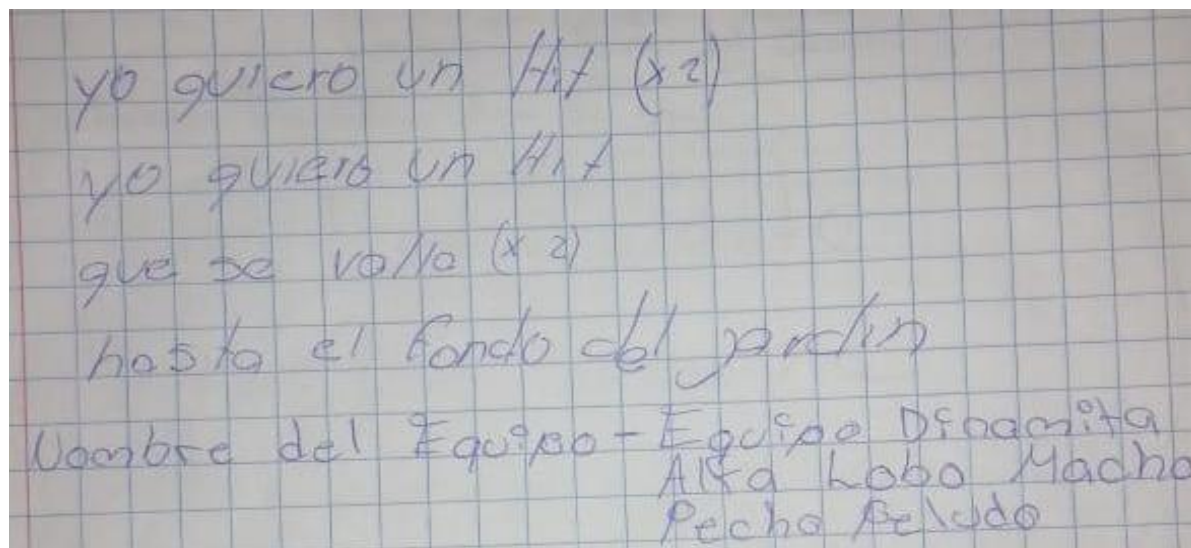 yo quiero un Hit (x2)
yo quiero un Hit
que se vaya (x 2)
hasta el fondo del jardin
Nombre del Equipo - Equipo Dinamita
Alfa Lobo Macho
Pecho Peludo